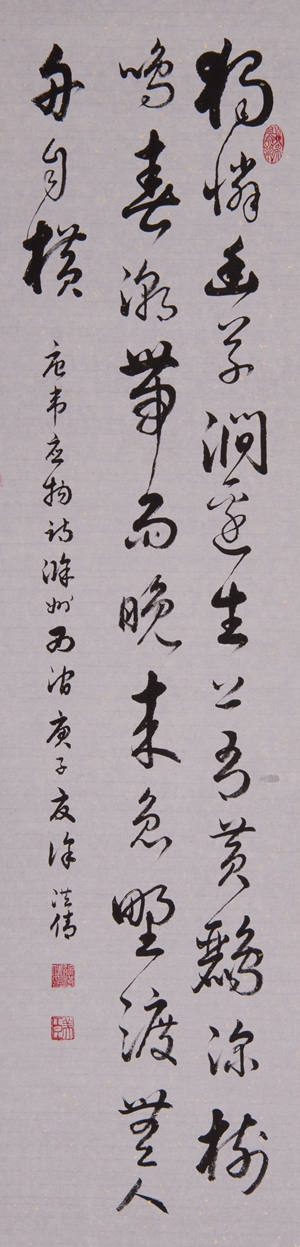 獨憐幽草澗邊生上有黄鸝深樹
鳴春潮帶雨晚来急野渡無人
舟自横
唐韦应物诗滁州西涧庚子夏徐洪倩